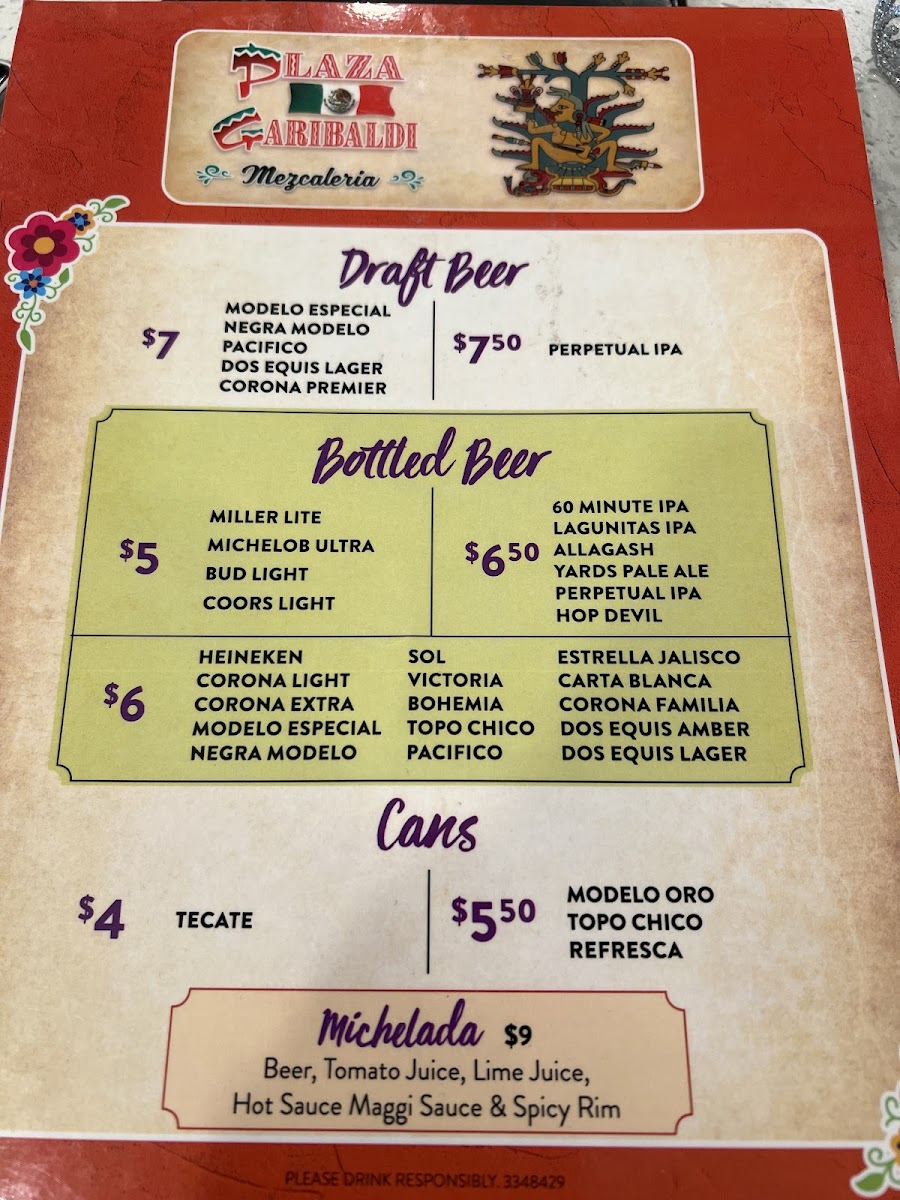 PLAZA
GARIBALDI
Mezcaleria
Draft Beer
$7
MODELO ESPECIAL
NEGRA MODELO
PACIFICO
DOS EQUIS LAGER
CORONA PREMIER
$7 50
PERPETUAL IPA
Bottled Beer
$5
MILLER LITE
MICHELOB ULTRA
BUD LIGHT
COORS LIGHT
$6 50
60 MINUTE IPA
LAGUNITAS IPA
ALLAGASH
YARDS PALE ALE
PERPETUAL IPA
HOP DEVIL
$6
HEINEKEN
CORONA LIGHT
CORONA EXTRA
MODELO ESPECIAL
NEGRA MODELO
SOL
VICTORIA
BOHEMIA
TOPO CHICO
PACIFICO
ESTRELLA JALISCO
CARTA BLANCA
CORONA FAMILIA
DOS EQUIS AMBER
DOS EQUIS LAGER
Cans
$4
TECATE
$5 50
MODELO ORO
TOPO CHICO
REFRESCA
Michelada $9
Beer, Tomato Juice, Lime Juice,
Hot Sauce Maggi Sauce & Spicy Rim
PLEASE DRINK RESPONSIBLY. 3348429